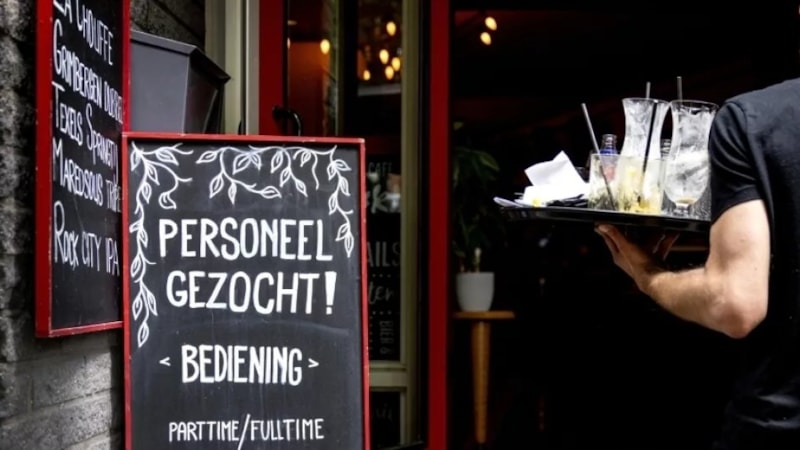 LA CHOUFFE
GRIMBERGEN DUBBEL
TEXELS SPRINGTIJ
MAREDSOUS TRIPEL
ROCK CITY IPA
PERSONEEL
GEZOCHT!
< BEDIENING >
PARTTIME/FULLTIME